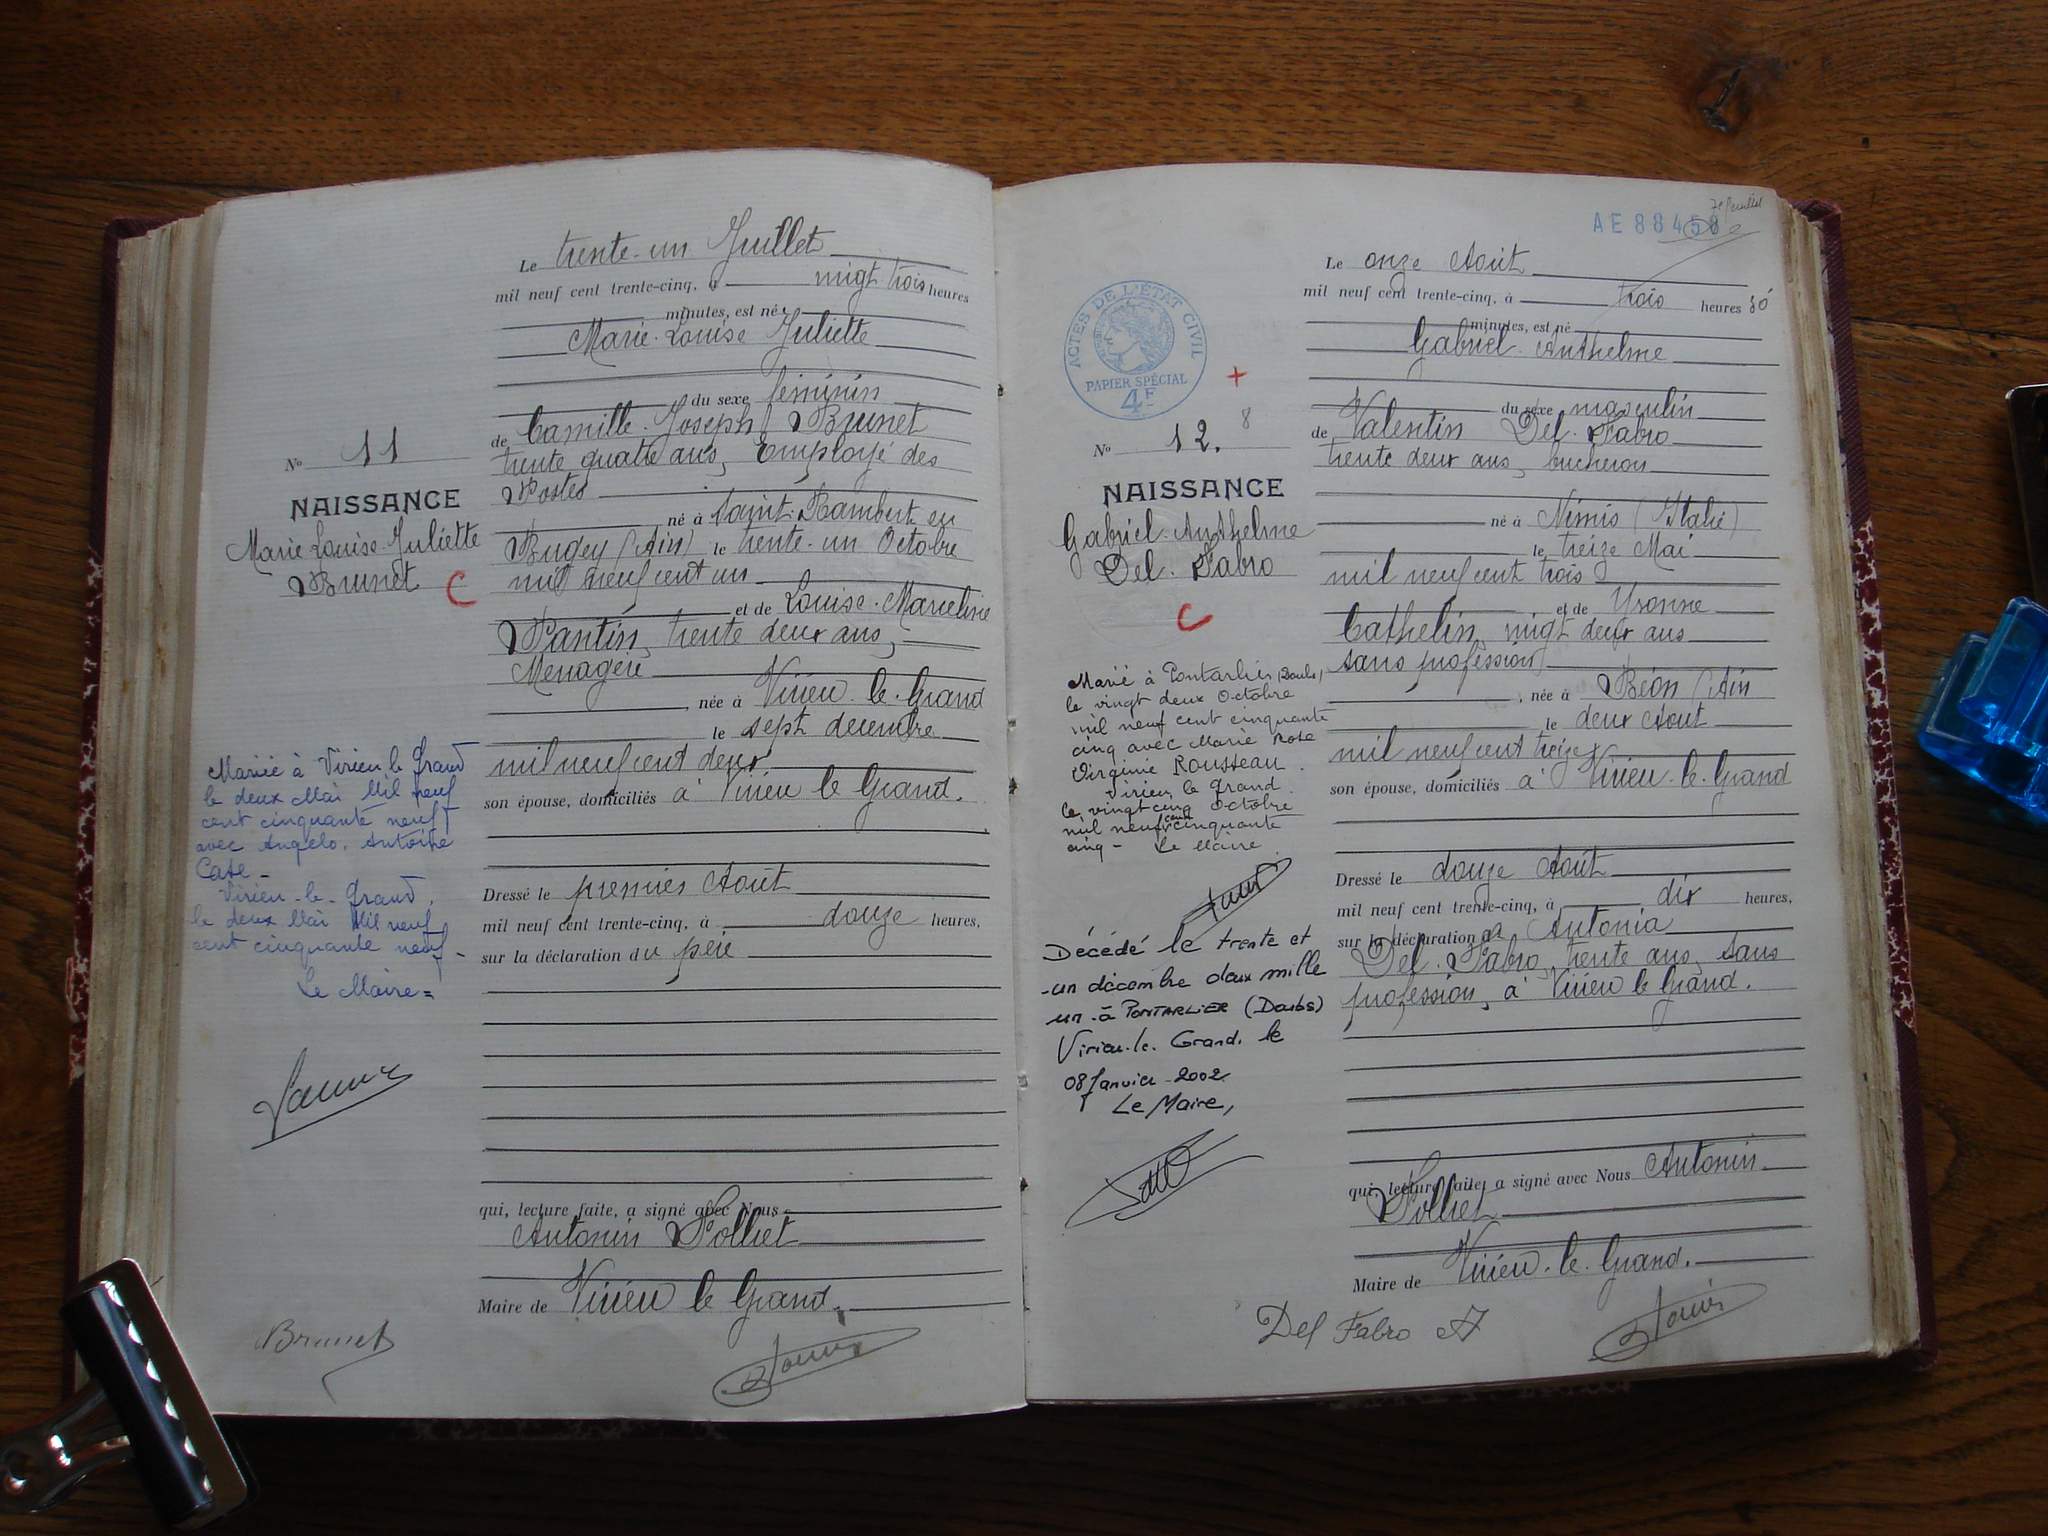 Le trente-un Juillet
mil neuf cent trente-cinq, à vingt trois heures
minutes, est né
Marie-Louise Juliette
du sexe féminin
de Camille Joseph Brunet
trente quatre ans, Employé des
Postes
né à Saint-Rambert en
Bugey (Ain) le trente-un Octobre
mil neuf cent un
et de Louise-Marceline
Pantin, trente deux ans,
Ménagère
, née à Virieu-le-Grand
le sept décembre
mil neuf cent deux
son épouse, domiciliés à Virieu le Grand.
Dressé le premier Août
mil neuf cent trente-cinq, à douze heures,
sur la déclaration du père
qui, lecture faite, a signé avec Nous
Antonin Tolliet
Maire de Virieu le Grand.
No 11
NAISSANCE
Marie Louise Juliette
Brunet
C
Mariée à Virieu le Grand
le deux Mai Mil neuf
cent cinquante neuf
avec Angelo, Antoine
Virieu-le-Grand,
le deux Mai Mil neuf
cent cinquante neuf-
Le Maire=
Brunet
AE 88458
Le onze Août
mil neuf cent trente-cinq, à trois heures 30
minutes, est né
Gabriel-Anthelme
du sexe masculin
de Valentin Del-Fabro
trente deux ans, bucheron
né à Nimis (Italie)
le treize Mai
mil neuf cent trois
et de Yvonne
Cathelin, vingt deux ans
sans profession
, née à Béon (Ain
le deux Aout
mil neuf cent treize
son épouse, domiciliés à Virieu-le-Grand
Dressé le douze Août
mil neuf cent trente-cinq, à dix heures,
sur la déclaration de Antonia
Del-Fabro, trente ans, sans
profession, à Virieu le Grand.
qui, lecture faite, a signé avec Nous Antonin
Tolliet
Maire de Virieu-le-Grand.
ACTES DE L'ÉTAT CIVIL
PAPIER SPÉCIAL
4F
+
No 12. 8
NAISSANCE
Gabriel-Anthelme
Del-Fabro
C
Marié à Pontarlier (Doubs)
le vingt deux Octobre
mil neuf cent cinquante
cinq avec Marie Rose
Virginie Rousseau.
Virieu le Grand.
le vingt cinq Octobre
mil neuf cent cinquante
cinq - Le Maire
Décédé le trente et
-un décembre deux mille
un à PONTARLIER (Doubs)
Virieu-le-Grand, le
08 Janvier 2002
Le Maire,
Del Fabro A